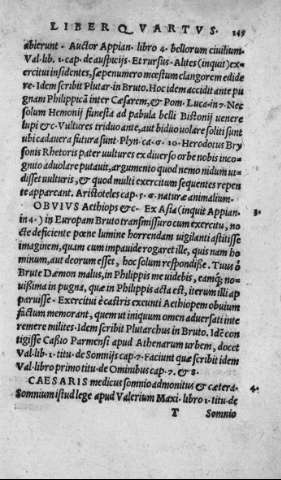 LIBER QVARTVS. 149
abierunt. Auctor Appian. libro 4. bellorum ciuilium.
Val. lib. 1. cap. de auspicijs. Et rursus. Alites (inquit) ex-
ercitui insidentes, sæpenumero mœstum clangorem edide
re. Idem scribit Plutar. in Bruto. Hoc idem accidit ante pu
gnam Philippicã inter Cæsarem, & Pom. Luca. in 7. Nec
solum Hemonij funesta ad pabula belli Bistonij uenere
lupi &c. Vultures triduo ante, aut biduo uolare soliti sunt
ubi cadauera futura sunt. Plyn. ca. 6. 10. Herodotus Bry
sonis Rhetoris pater uultures ex diuerso orbe nobis inco-
gnito aduolare putauit, argumento quod nemo nidum ui-
disset uulturis, & quod multi exercitum sequentes repen
te appareant. Aristoteles cap. 5. 6. naturæ animalium.
OBVIVS Aethiops &c. Ex Asia (inquit Appian. 3.
in 4.) in Europam Bruto transmissuro cum exercitu, no-
cte deficiente pœne lumine horrendam uigilanti astitisse
imaginem, quam cum impauide rogaret ille, quis nam ho
minum, aut deorum esset, hoc solum respondisse. Tuus ô
Brute Dæmon malus, in Philippis me uidebis, eamq; no-
uissima in pugna, quæ in Philippis acta est, iterum illi ap
paruisse. Exercitui è castris exeunti Aethiopem obuium
factum memorant, quem ut iniquum omen aduersati inte
remere milites. Idem scribit Plutarchus in Bruto. Idẽ con
tigisse Cassio Parmensi apud Athenarum urbem, docet
Val. lib. 1. titu. de Somnijs cap. 7. Faciunt quæ scribit idem
Val. libro primo titu. de Ominibus cap. 7. & 8.
CAESARIS medicus somnio admonitus & cætera. 4.
Somnium istud lege apud Valerium Maxi. libro 1. titu. de
T Somnio